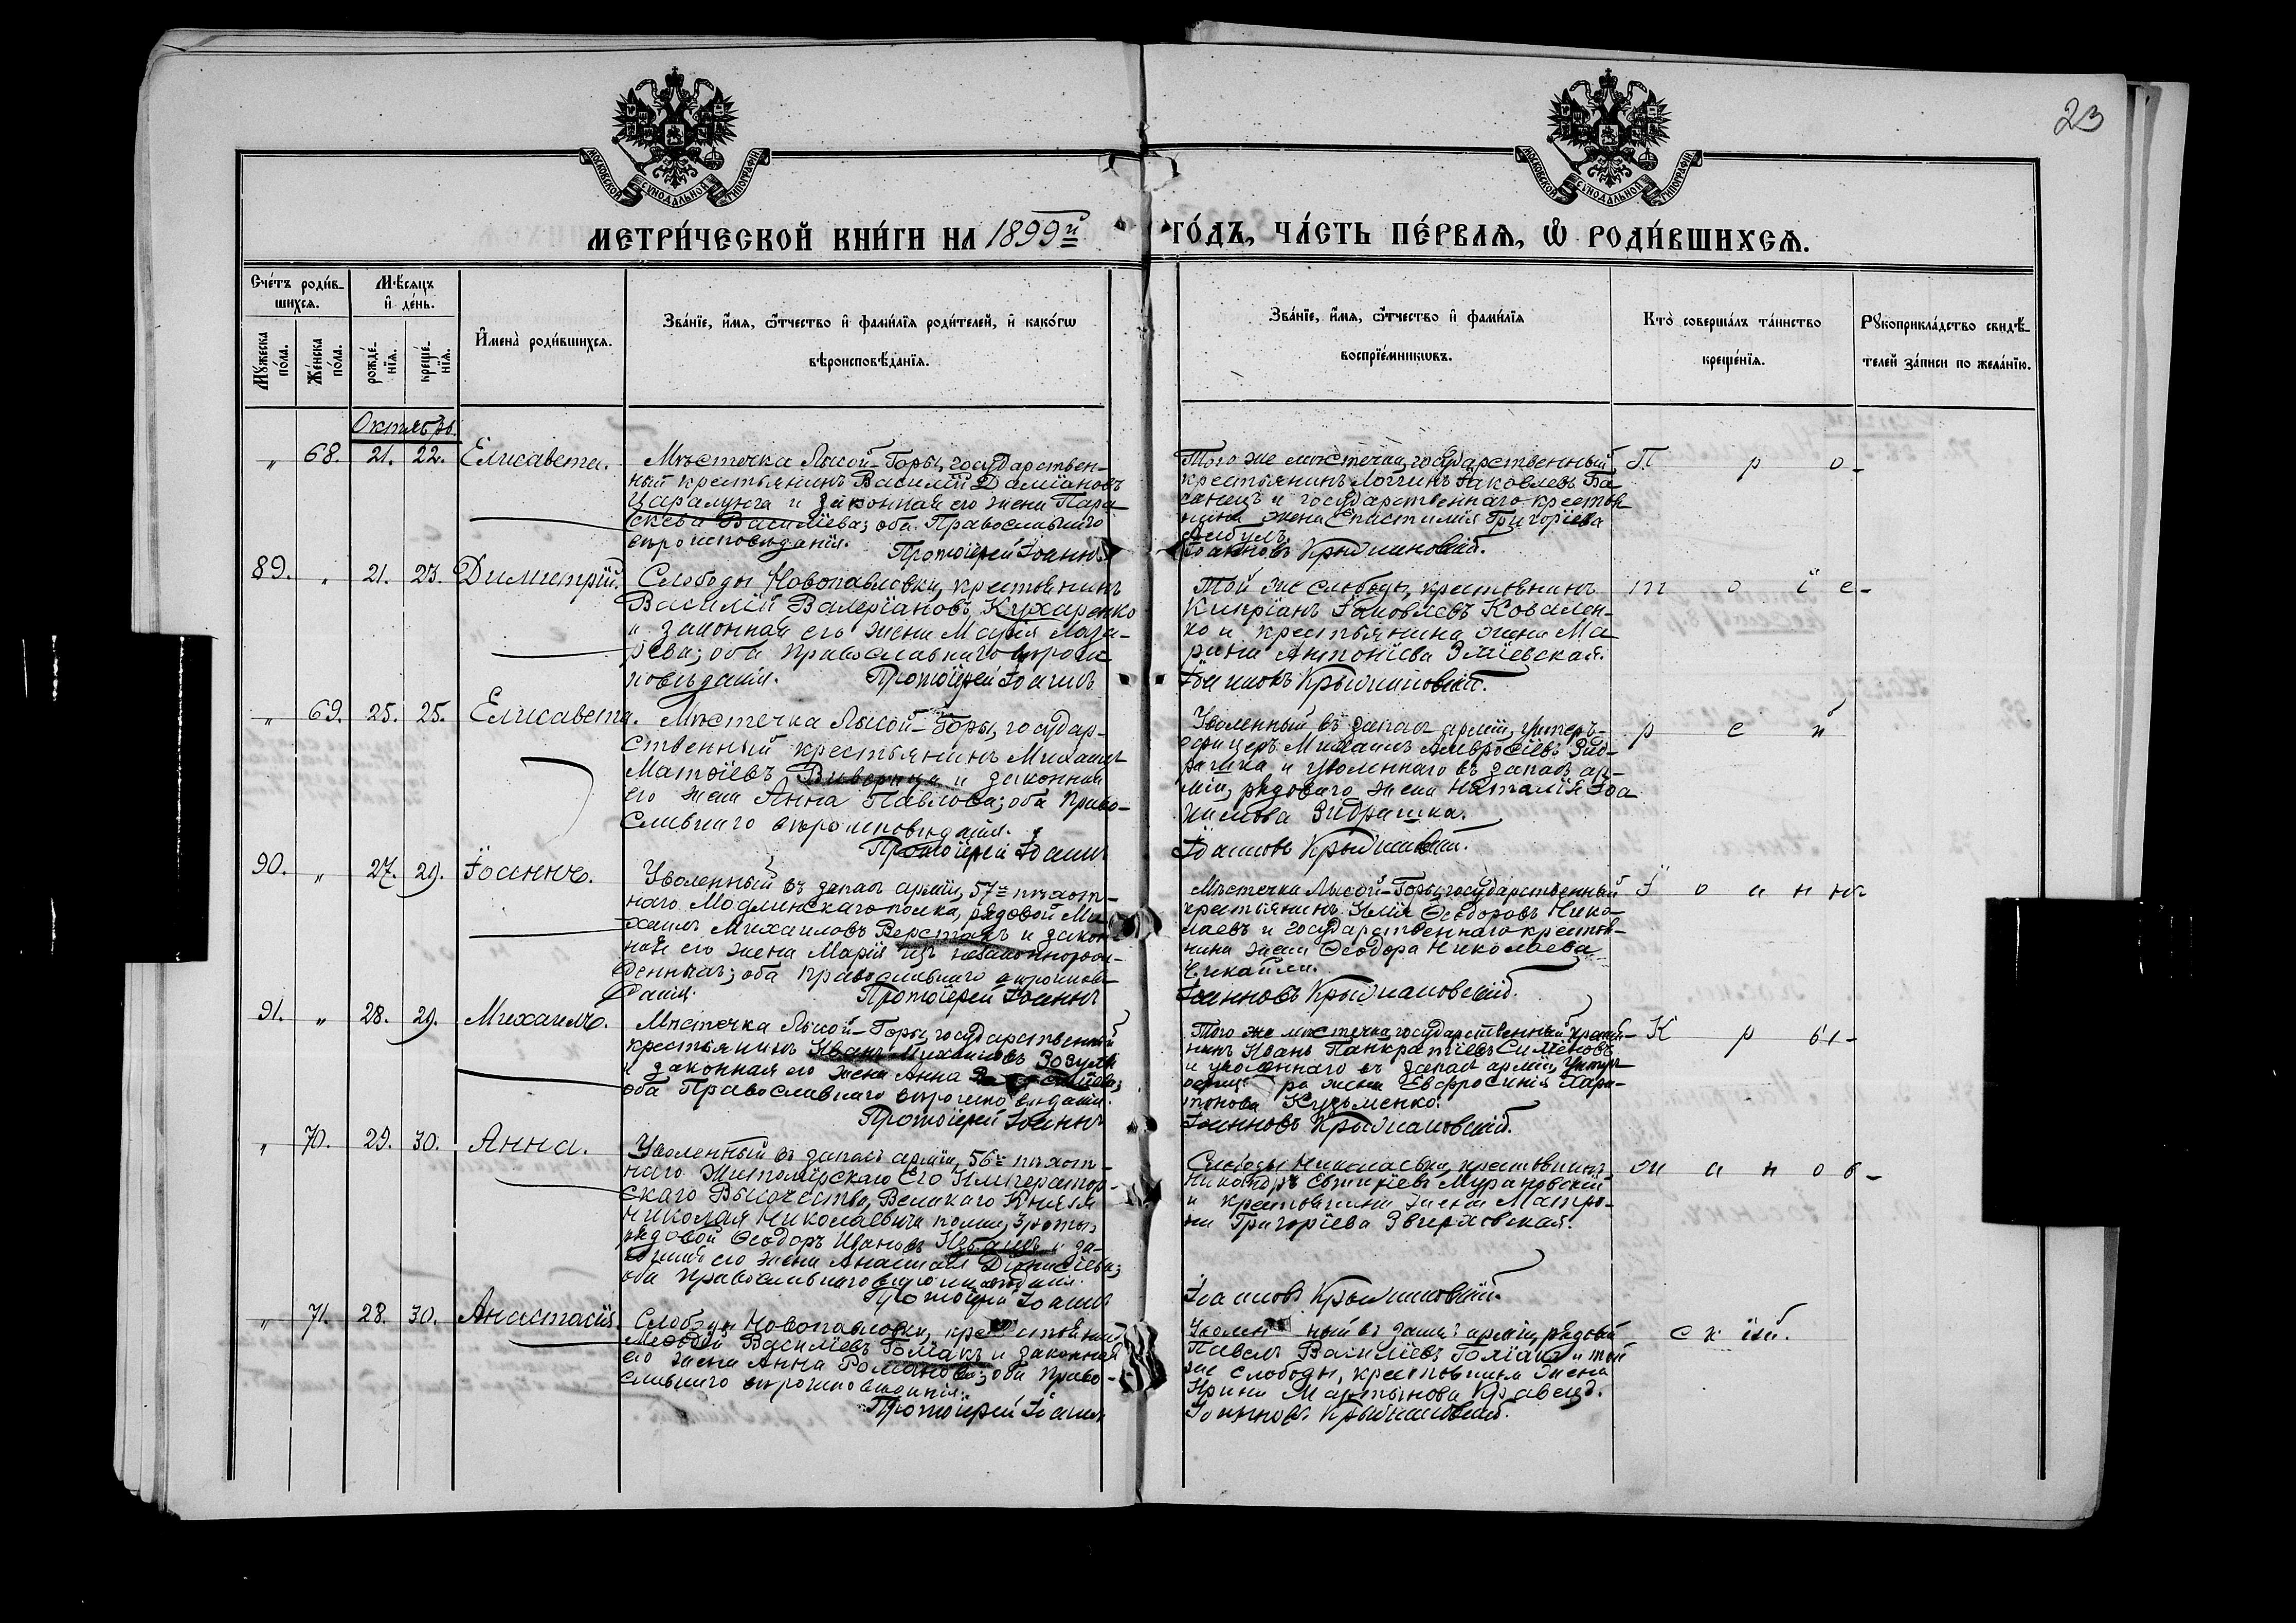 23
МОСКОВСКОЙ СѴНОДАЛЬНОЙ ТИПОГРАФІИ
МОСКОВСКОЙ СѴНОДАЛЬНОЙ ТИПОГРАФІИ
МЕТРИ́ЧЕСКОЙ КНИ́ГИ НА 1899й ГО́ДЪ, ЧА́СТЬ ПЕ́РВАѦ, Ѽ РОДИ́ВШИХСѦ.
Счетъ родив-
шихся.
Мѣсяцъ
и день.
Мужеска
пола.
Женска
пола.
рожде-
нія.
креще-
нія.
Имена родившихся.
Званіе, имя, отчество и фамилія родителей, и какогω
вѣроисповѣданія.
Званіе, имя, отчество и фамилія
воспріемникωвъ.
Кто совершалъ таинство
крещенія.
Рукоприкладство свидѣ-
телей записи по желанію.
Октябрь.
„ 68. 21. 22. Елисавета.
Мѣстечка Лысой-Горы, государствен-
ный крестьянинъ Василій Даміановъ
Царалунга и законная его жена Пара-
скева Василіева; оба Православнаго
вѣроисповѣданія.
Протоіерей Іоаннъ
Того же мѣстечка, государственный
крестьянинъ Логгинъ Іаковлевъ Ба-
санецъ и государственнаго крестья-
нина жена Епистимія Григоріева
Іоанновъ Крыжановскій.
П р о-
89. „ 21. 23. Димитрій.
Слободы Новопавловки, крестьянинъ
Василій Валеріановъ Кухаренко
и законная его жена Марія Лаза-
рева; оба Православнаго вѣроис-
повѣданія. Протоіерей Іоаннъ
Той же слободы, крестьянинъ
Кипріанъ Іаковлевъ Ковален-
ко и крестьянина жена Ма-
рина Антоніева Зміевская.
Іоанновъ Крыжановскій.
т о і е-
„ 69. 25. 25. Елисавета.
Мѣстечка Лысой-Горы, государ-
ственный крестьянинъ Михаилъ
Матѳіевъ Виверица и законная
его жена Анна Павлова; оба Право-
славнаго вѣроисповѣданія.
Протоіерей Іоаннъ
Уволенный въ запасъ арміи, унтеръ-
офицеръ Михаилъ Амвросіевъ Зид-
рашка и уволеннаго въ запасъ ар-
міи, рядоваго жена Наталія Іоа-
кимова Зидрашка.
Іоанновъ Крыжановскій.
р е й
90. „ 27. 29. Іоаннъ.
Уволенный въ запасъ арміи, 57го пѣхот-
наго Модлинскаго полка, рядовой Ми-
хаилъ Михаиловъ Верстакъ и закон-
ная его жена Марія изъ незаконнорож-
денныхъ; оба Православнаго вѣроисповѣ-
данія. Протоіерей Іоаннъ
Мѣстечка Лысой-Горы, государственный
крестьянинъ Илія Ѳеодоровъ Нико-
лаевъ и государственнаго крестья-
нина жена Ѳеодора Николаева
Іоанновъ Крыжановскій.
І о а н н-
91. „ 28. 29. Михаилъ.
Мѣстечка Лысой-Горы, государственный
крестьянинъ Иванъ Михаиловъ Зозуля
и законная его жена Анна
оба Православнаго вѣроисповѣданія.
Протоіерей Іоаннъ
Того же мѣстечка, государственный крестья-
нинъ Иванъ Панкратіевъ Симеоновъ
и уволеннаго въ запасъ арміи, унтеръ-
офице ра жена Евфросинія Хари-
тонова Кузьменко.
Іоанновъ Крыжановскій.
К р ы-
„ 70. 29. 30. Анна.
Уволенный въ запасъ арміи, 56го пѣхот-
наго Житомірскаго Его Император-
скаго Высочества, Великаго Князя
Николая Николаевича полка, 3 роты,
рядовой Ѳеодоръ Ивановъ Избашъ и за-
конная его жена Анастасія Діонисіева;
оба Православнаго вѣроисповѣданія.
Протоіерей Іоаннъ
Слободы Николаевки, крестьянинъ
Никандръ Евтихіевъ Мурановскій
и крестьянина жена Матро-
на Григоріева Звержовская.
Іоанновъ Крыжановскій.
ж а н о в-
„ 71. 28. 30. Анастасія.
Слободы Новопавловки, крестьянинъ
Меѳодій Василіевъ Голіакъ и законная
его жена Анна Романова; оба Право-
славнаго вѣроисповѣданія.
Протоіерей Іоаннъ
Уволен ный въ запасъ арміи, рядовой
Павелъ Василіевъ Голіакъ и той
же слободы, крестьянина жена
Ирина Мартынова Кравецъ.
Іоанновъ Крыжановскій.
с к ій.